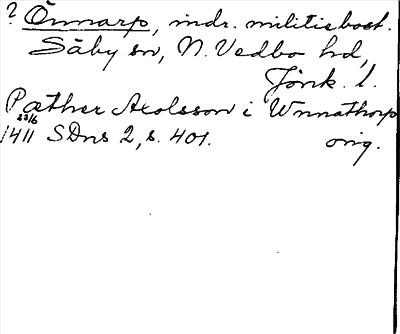 ? Önnarp, indr. militiebost.
Säby sn, N. Vedbo hd,
Jönk. l.
Pæther Axolsson i Wnnathorp
23/6
1411 SDns 2, s. 401. orig.